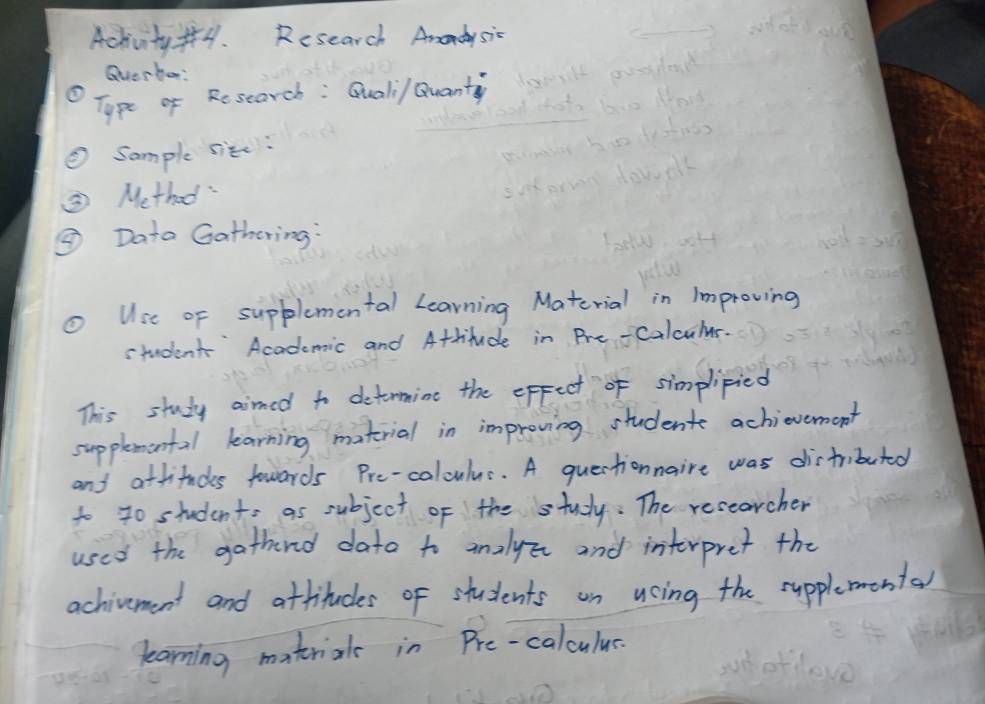 Activity #4. Research Anadysis
Question:
① Type of Research: Quali/Quanti
② Sample size:
③ Method:
④ Data Gathering:
① Use of supplemental Learning Material in Improving
students Academic and Attitude in Pre-Calculus.
This study aimed to determine the effect of simplified
supplemental learning material in improving students achievement
and attitudes towards Pre-calculus. A questionnaire was distributed
to 70 students as subject of the study. The researcher
used the gathered data to analyze and interpret the
achivement and attitudes of students on using the supplemental
learning materials in Pre-calculus.